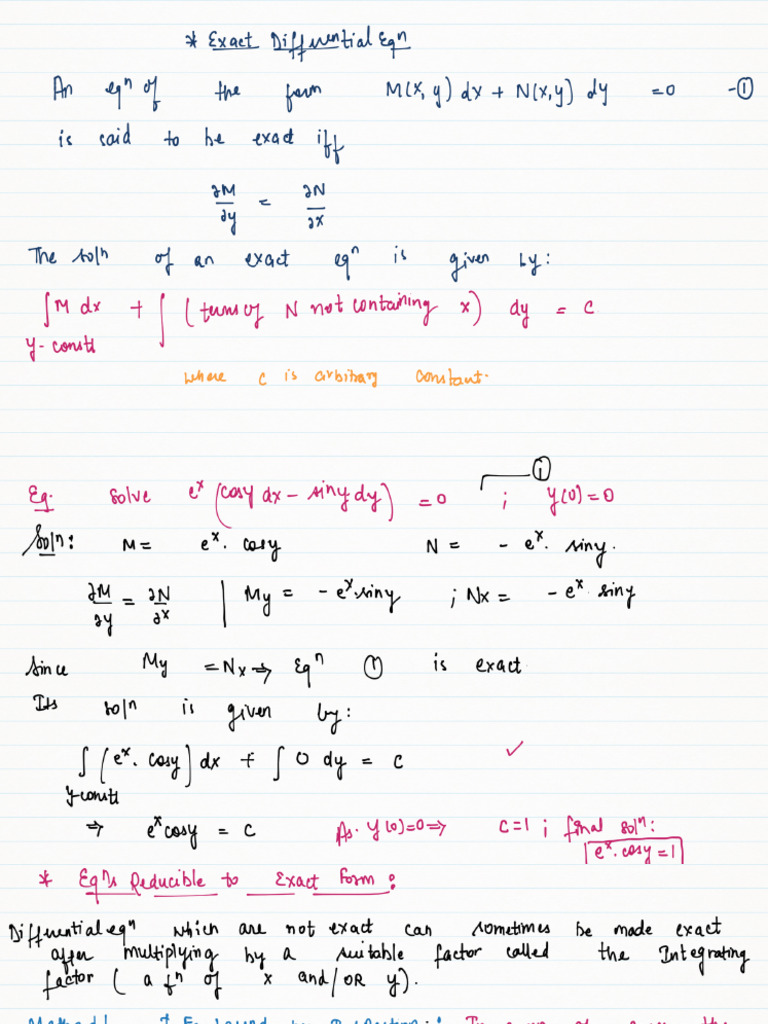 * Exact Differential Eqn
An eqn of the form M(x, y) dx + N(x,y) dy = 0 -①
is said to be exact iff
∂M/∂y = ∂N/∂x
The soln of an exact eqn is given by:
∫M dx + ∫ (terms of N not containing x) dy = c
y-constt
where c is arbitrary constant.
①
Eg. Solve e^x (cosy dx - siny dy) = 0 ; y(0)=0
Soln: M = e^x. cosy N = - e^x. siny.
∂M/∂y = ∂N/∂x | My = - e^x.siny ; Nx = - e^x. siny
Since My = Nx ⇒ Eqn ① is exact
Its soln is given by:
∫ (e^x. cosy) dx + ∫ 0 dy = c ✓
y-constt
⇒ e^x cosy = c As. y(0)=0 ⇒ c=1 ; final soln:
e^x.cosy=1
* Eqns Reducible to Exact Form:
Differential eqn which are not exact can sometimes be made exact
after multiplying by a suitable factor called the Integrating
factor ( a fn of x and/OR y).